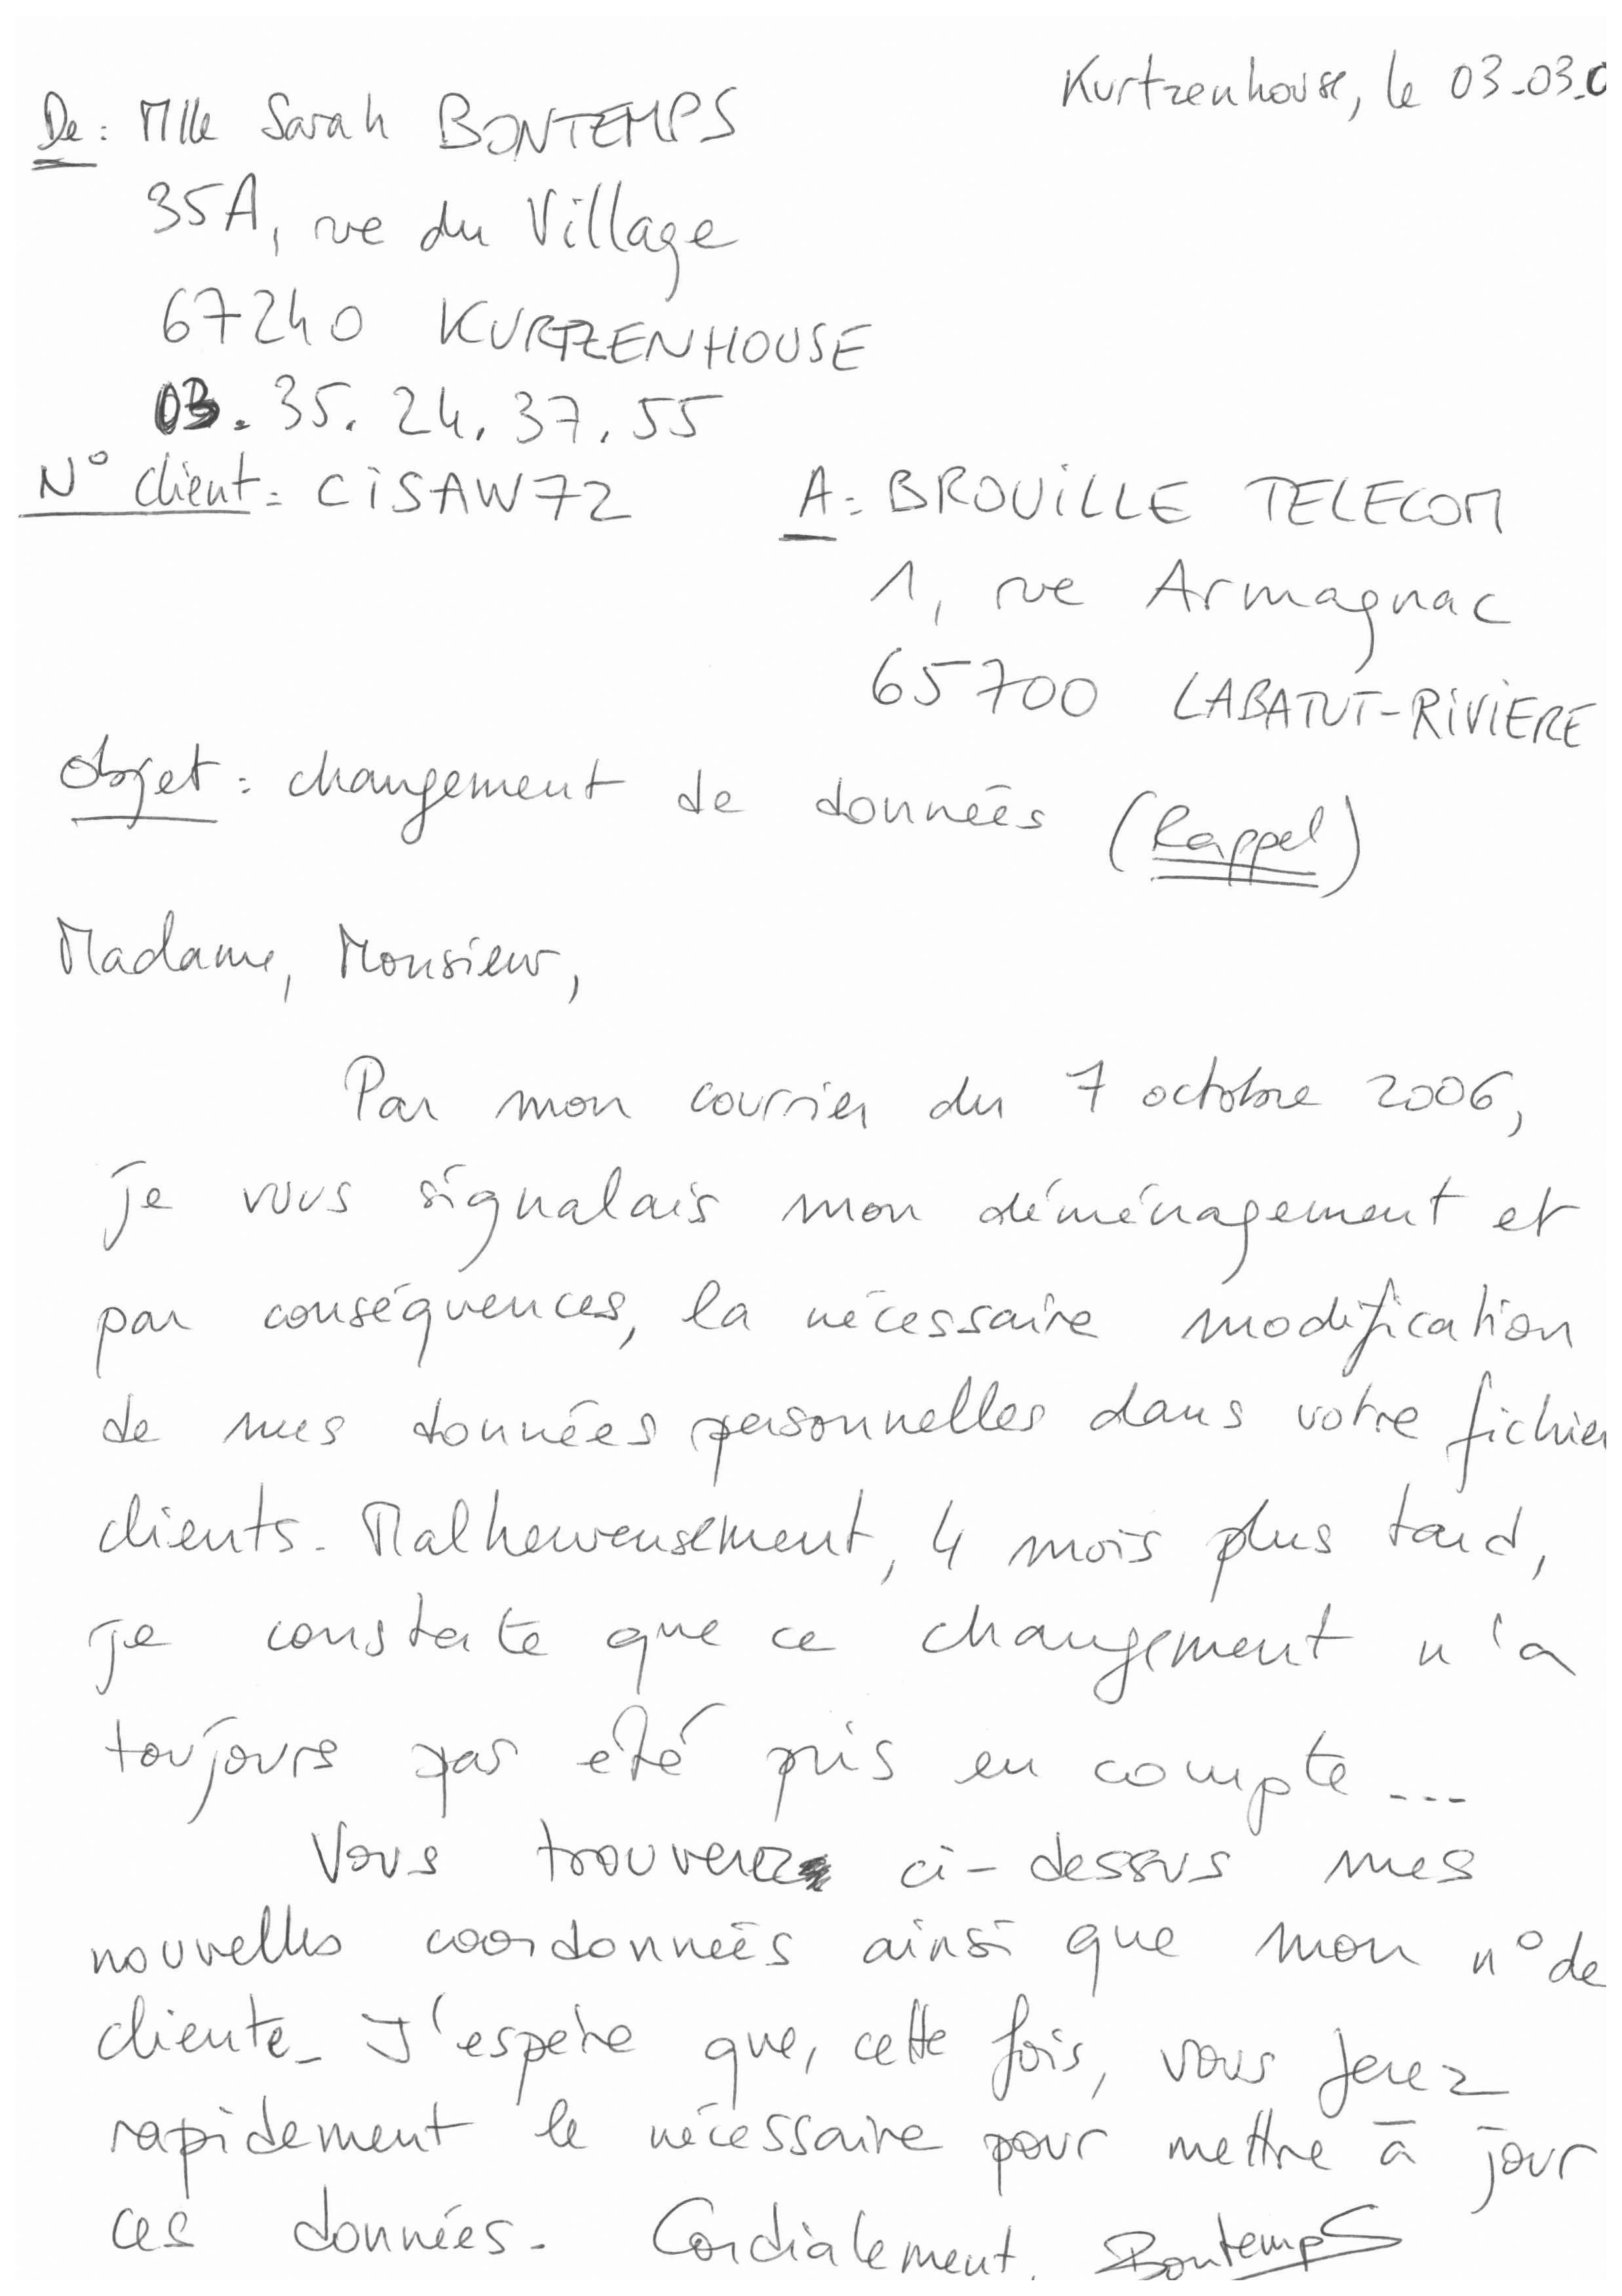 Kurtzenhouse, le 03.03.0
De : Mlle Sarah BONTEMPS
35A, rue du Village
67240 KURTZENHOUSE
03.35.24.37.55
N° client : CiSAW72
A : BROUiLLE TELECOM
1, rue Armagnac
65700 LABATUT-RiViERE
Objet : changement de données (Rappel)
Madame, Monsieur,
Par mon courrier du 7 octobre 2006,
je vous signalais mon déménagement et
par conséquences, la nécessaire modification
de mes données personnelles dans votre fichier
clients. Malheureusement, 4 mois plus tard,
je constate que ce changement n'a
toujours pas été pris en compte ...
Vous trouverez ci-dessus mes
nouvelles coordonnées ainsi que mon n° de
cliente. J'espère que, cette fois, vous ferez
rapidement le nécessaire pour mettre à jour
ces données. Cordialement. Bontemps